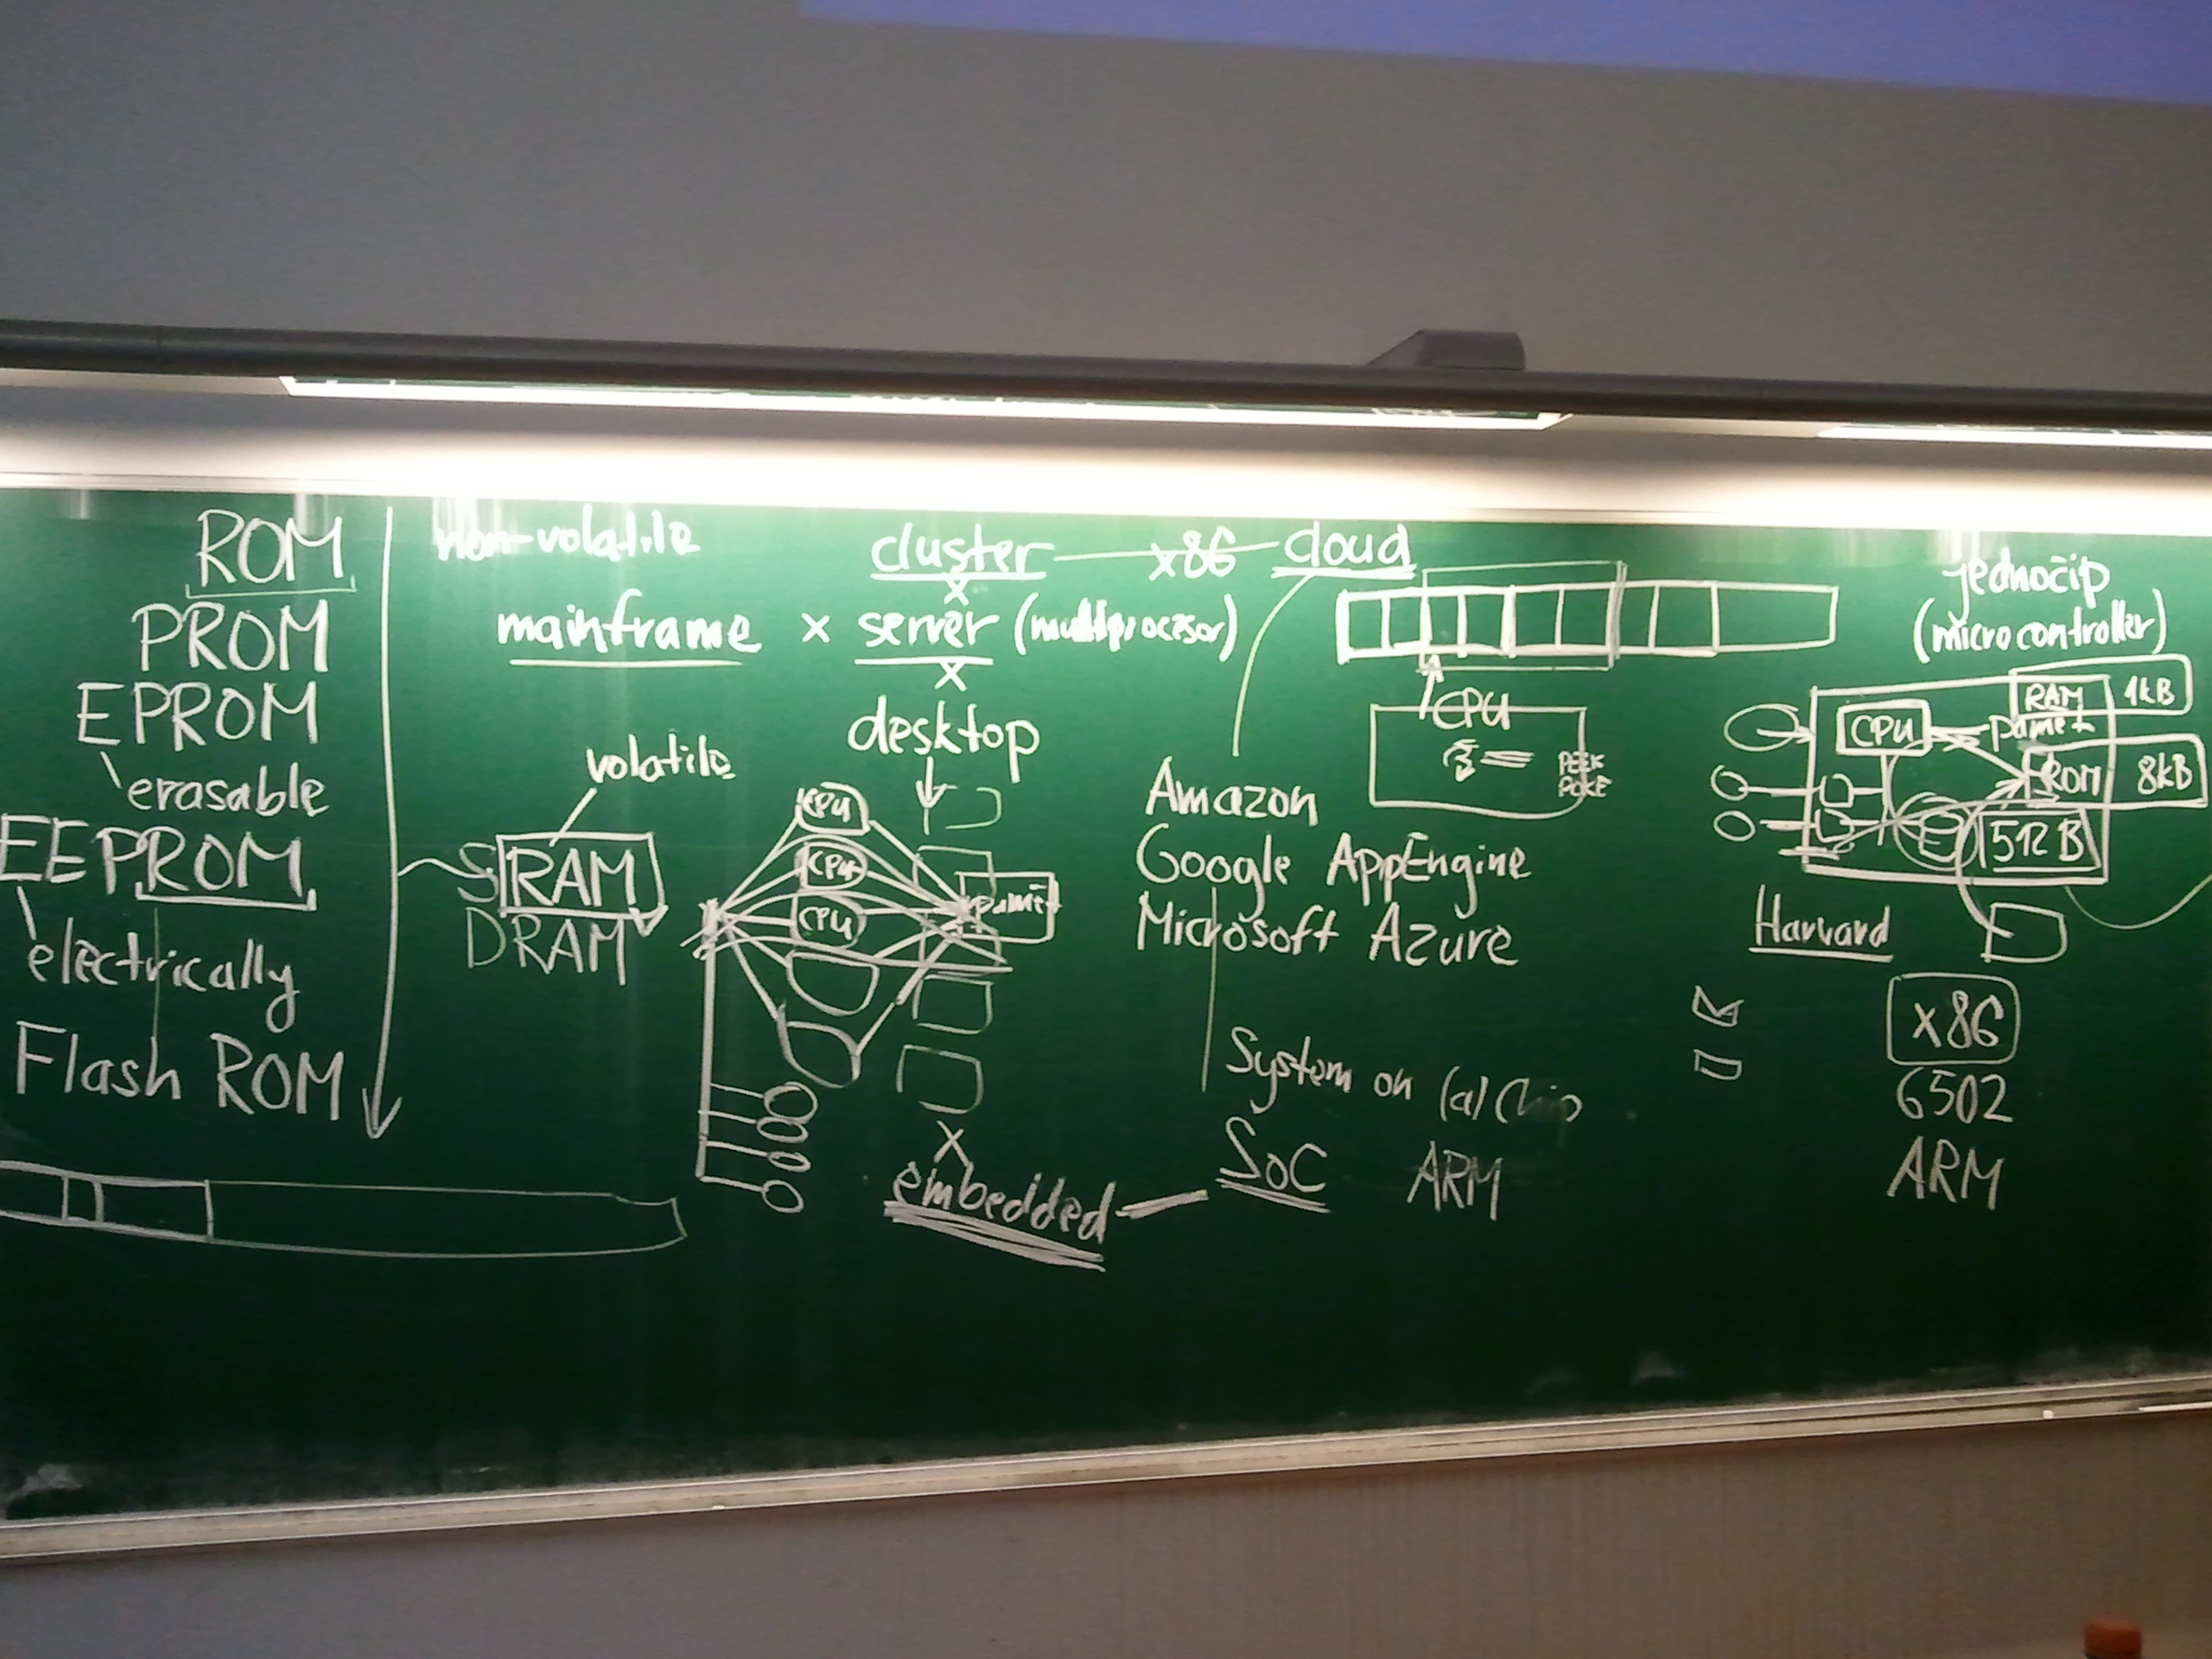 ROM
PROM
EPROM
erasable
EEPROM
electrically
Flash ROM
non-volatile
volatile
SRAM
DRAM
cluster x86 cloud
x
mainframe x server (multiprocesor)
x
desktop
CPU
CPU
CPU
paměť
x
embedded
Amazon
Google AppEngine
Microsoft Azure
System on (a) Chip
SoC ARM
CPU
PEEK
POKE
jednočip
(microcontroller)
RAM 1kB
CPU paměť
ROM 8kB
512 B
Harvard
x86
6502
ARM